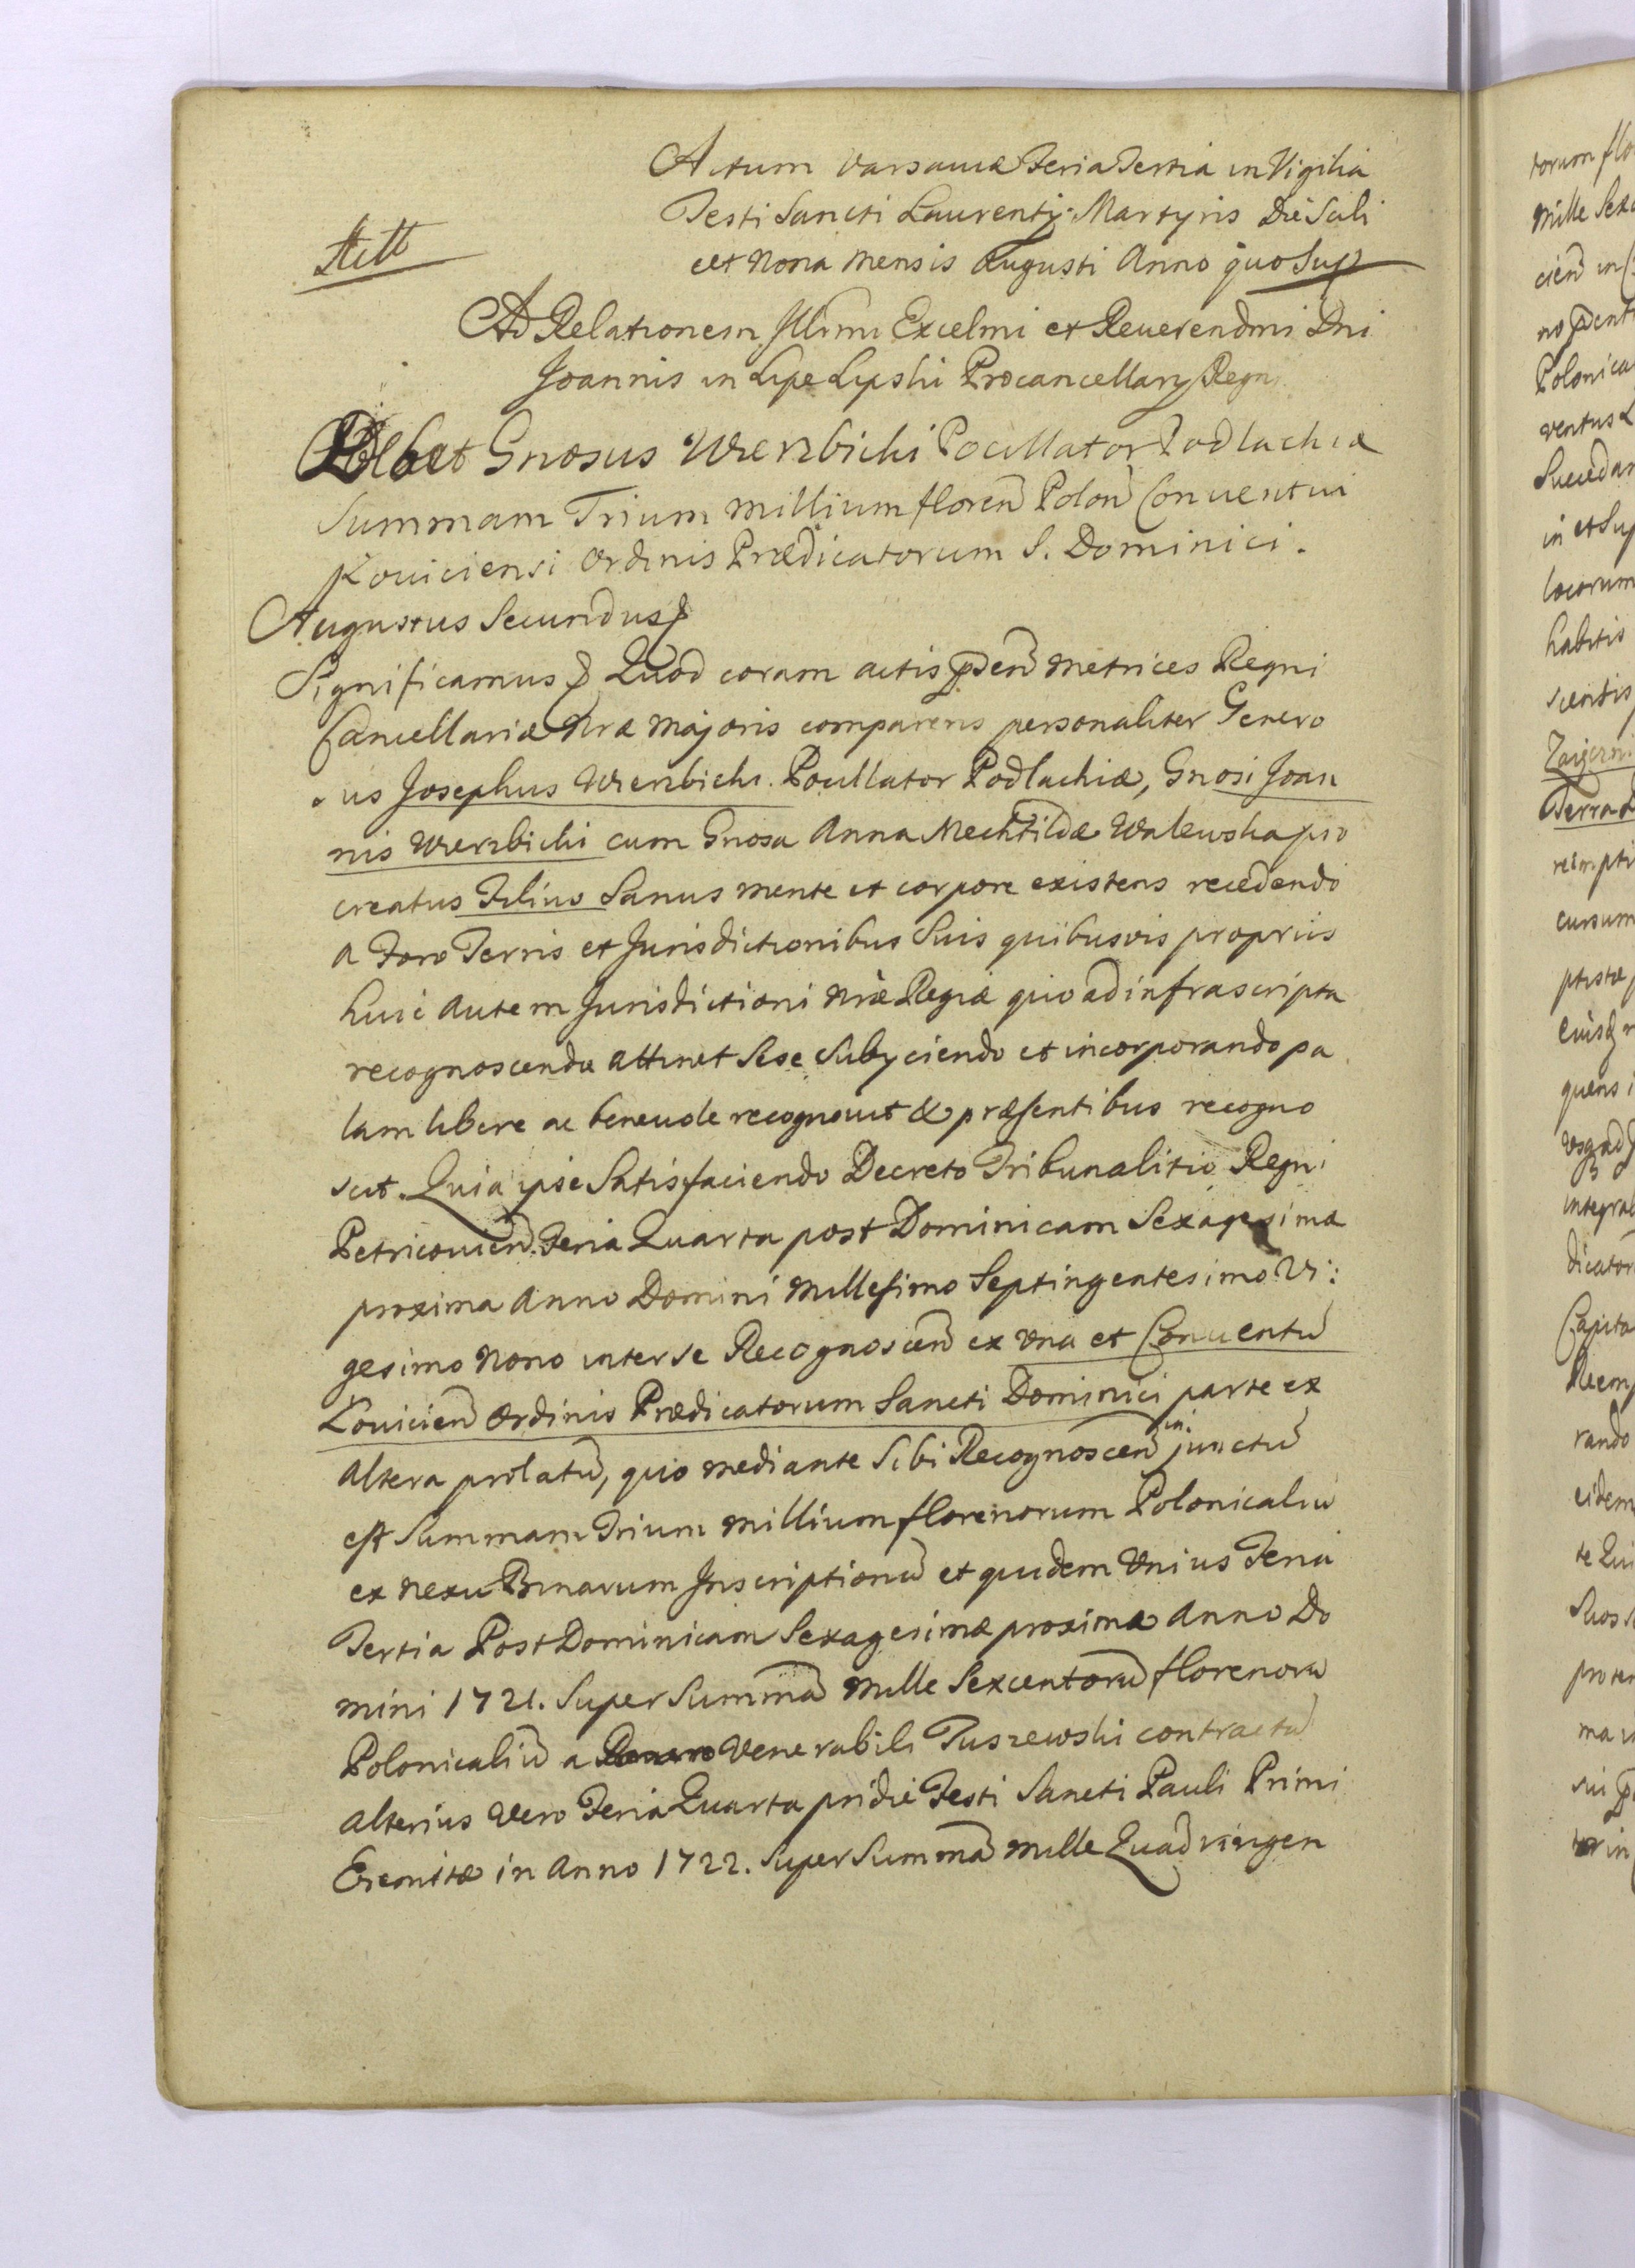 Actum Varsaviæ Feria Tertia in Vigilia
Festi Sancti Laurentij Martyris Die Scili
cet Nona Mensis Augusti Anno quo Sup
Ad Relationem Illrmi Excelmi et Reverendmi Dni
Joannis in Lipe Lipski Procancellarij Regni
Debet Gnosus Wierzbicki Pocillator Podlachiæ
Summam Trium Millium floren Polon Conventui
Loviciensi Ordinis Prædicatorum S. Dominici.
Augustus Secundus
Significamus Quod coram actis pden Metrices Regni
Cancellariæ Nræ Majoris comparens personaliter Genero
sus Josephus Wierzbicki Pocillator Podlachiæ, Gnosi Joan
nis Wierzbicki cum Gnosa Anna Mechtilde Walewska pro
creatus Filius Sanus mente et corpore existens recedendo
a Foro Terris et Jurisdictionibus Suis quibusvis propriis
huic autem Jurisdictioni Nræ Regiæ quo ad infrascripta
recognoscenda attinet Sese Subijciendo et incorporando pa
lam libere ac benevole recognovit & præsentibus recogno
scit. Quia ipse Satisfaciendo Decreto Tribunalitio Regni
Petricovien. Feria Quarta post Dominicam Sexagesimæ
proxima Anno Domini Millesimo Septingentesimo Vi:
gesimo Nono inter se Recognoscen ex una et Conventu
Lovicien Ordinis Prædicatorum Sancti Dominici parte ex
altera prolatu, quo mediante Sibi Recognoscen in junctu
est Summam Trium Millium florenorum Polonicaliu
ex nexu Binarum Inscriptionu et quidem Unius Feria
Tertia Post Dominicam Sexagesimæ proxima Anno Do
mini 1721. Super Summa Mille Sexcentoru florenoru
Polonicaliu a Venerabili Tuszewski contractu
alterius vero Feria Quarta pridie Festi Sancti Pauli Primi
Eremitæ in Anno 1722. Super Summa Mille Quadringen
torum flo
Mille Sexc
cien in
no pdenti
Polonica
ventus L
Succedan
in et Sup
locorum
habitis
scientis
Terra
reempti
cursum
ptistæ p
quens i
integral
dicator
Capita
Reemp
rando
eidem
te Qui
Suos
proten
ma